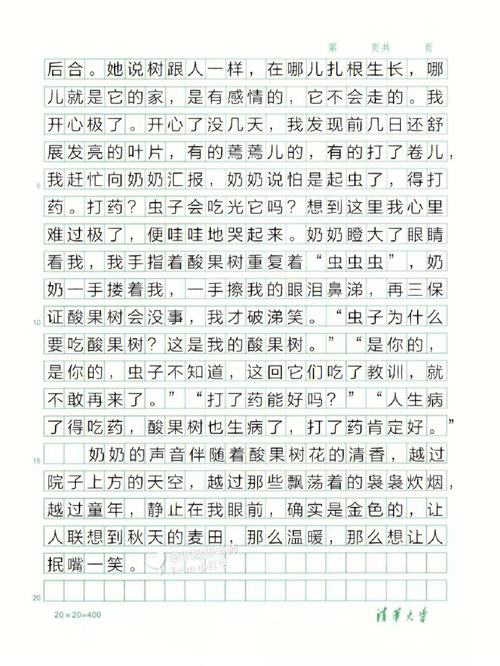 第 页共 页
后合。她说树跟人一样，在哪儿扎根生长，哪
儿就是它的家，是有感情的，它不会走的。我
开心极了。开心了没几天，我发现前几日还舒
展发亮的叶片，有的蔫蔫儿的，有的打了卷儿，
5
我赶忙向奶奶汇报，奶奶说怕是起虫了，得打
药。打药？虫子会吃光它吗？想到这里我心里
难过极了，便哇哇地哭起来。奶奶瞪大了眼睛
看我，我手指着酸果树重复着“虫虫虫”，奶
奶一手搂着我，一手擦我的眼泪鼻涕，再三保
10
证酸果树会没事，我才破涕笑。“虫子为什么
要吃酸果树？这是我的酸果树。”“是你的，
是你的，虫子不知道，这回它们吃了教训，就
不敢再来了。”“打了药能好吗？”“人生病
了得吃药，酸果树也生病了，打了药肯定好。”
15
奶奶的声音伴随着酸果树花的清香，越过
院子上方的天空，越过那些飘荡着的袅袅炊烟，
越过童年，静止在我眼前，确实是金色的，让
人联想到秋天的麦田，那么温暖，那么想让人
抿嘴一笑。
20
20×20=400
清华大学